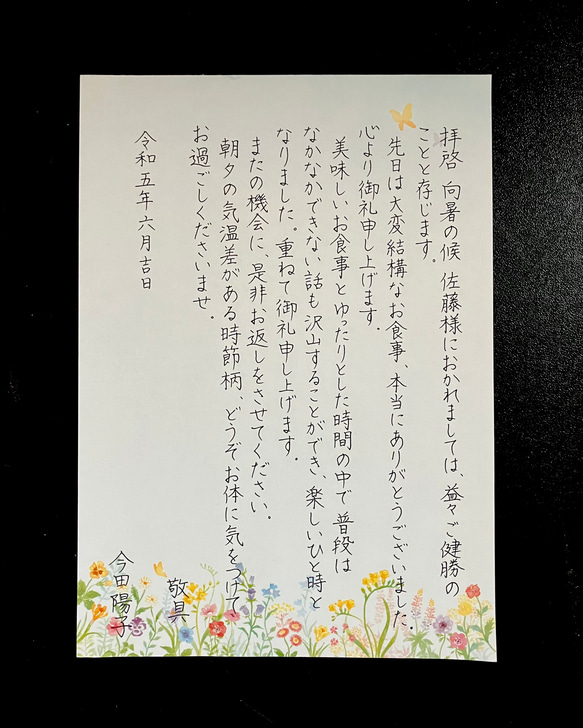 拝啓 向暑の候 佐藤様におかれましては、益々ご健勝の
ことと存じます。
先日は大変結構なお食事、本当にありがとうございました。
心より御礼申し上げます。
美味しいお食事とゆったりとした時間の中で 普段は
なかなかできない話も沢山することができ、楽しいひと時と
なりました。重ねて御礼申し上げます。
またの機会に、是非お返しをさせてください。
朝夕の気温差がある時節柄、どうぞお体に気をつけて
お過ごしくださいませ。
敬具
令和五年六月吉日
今田陽子